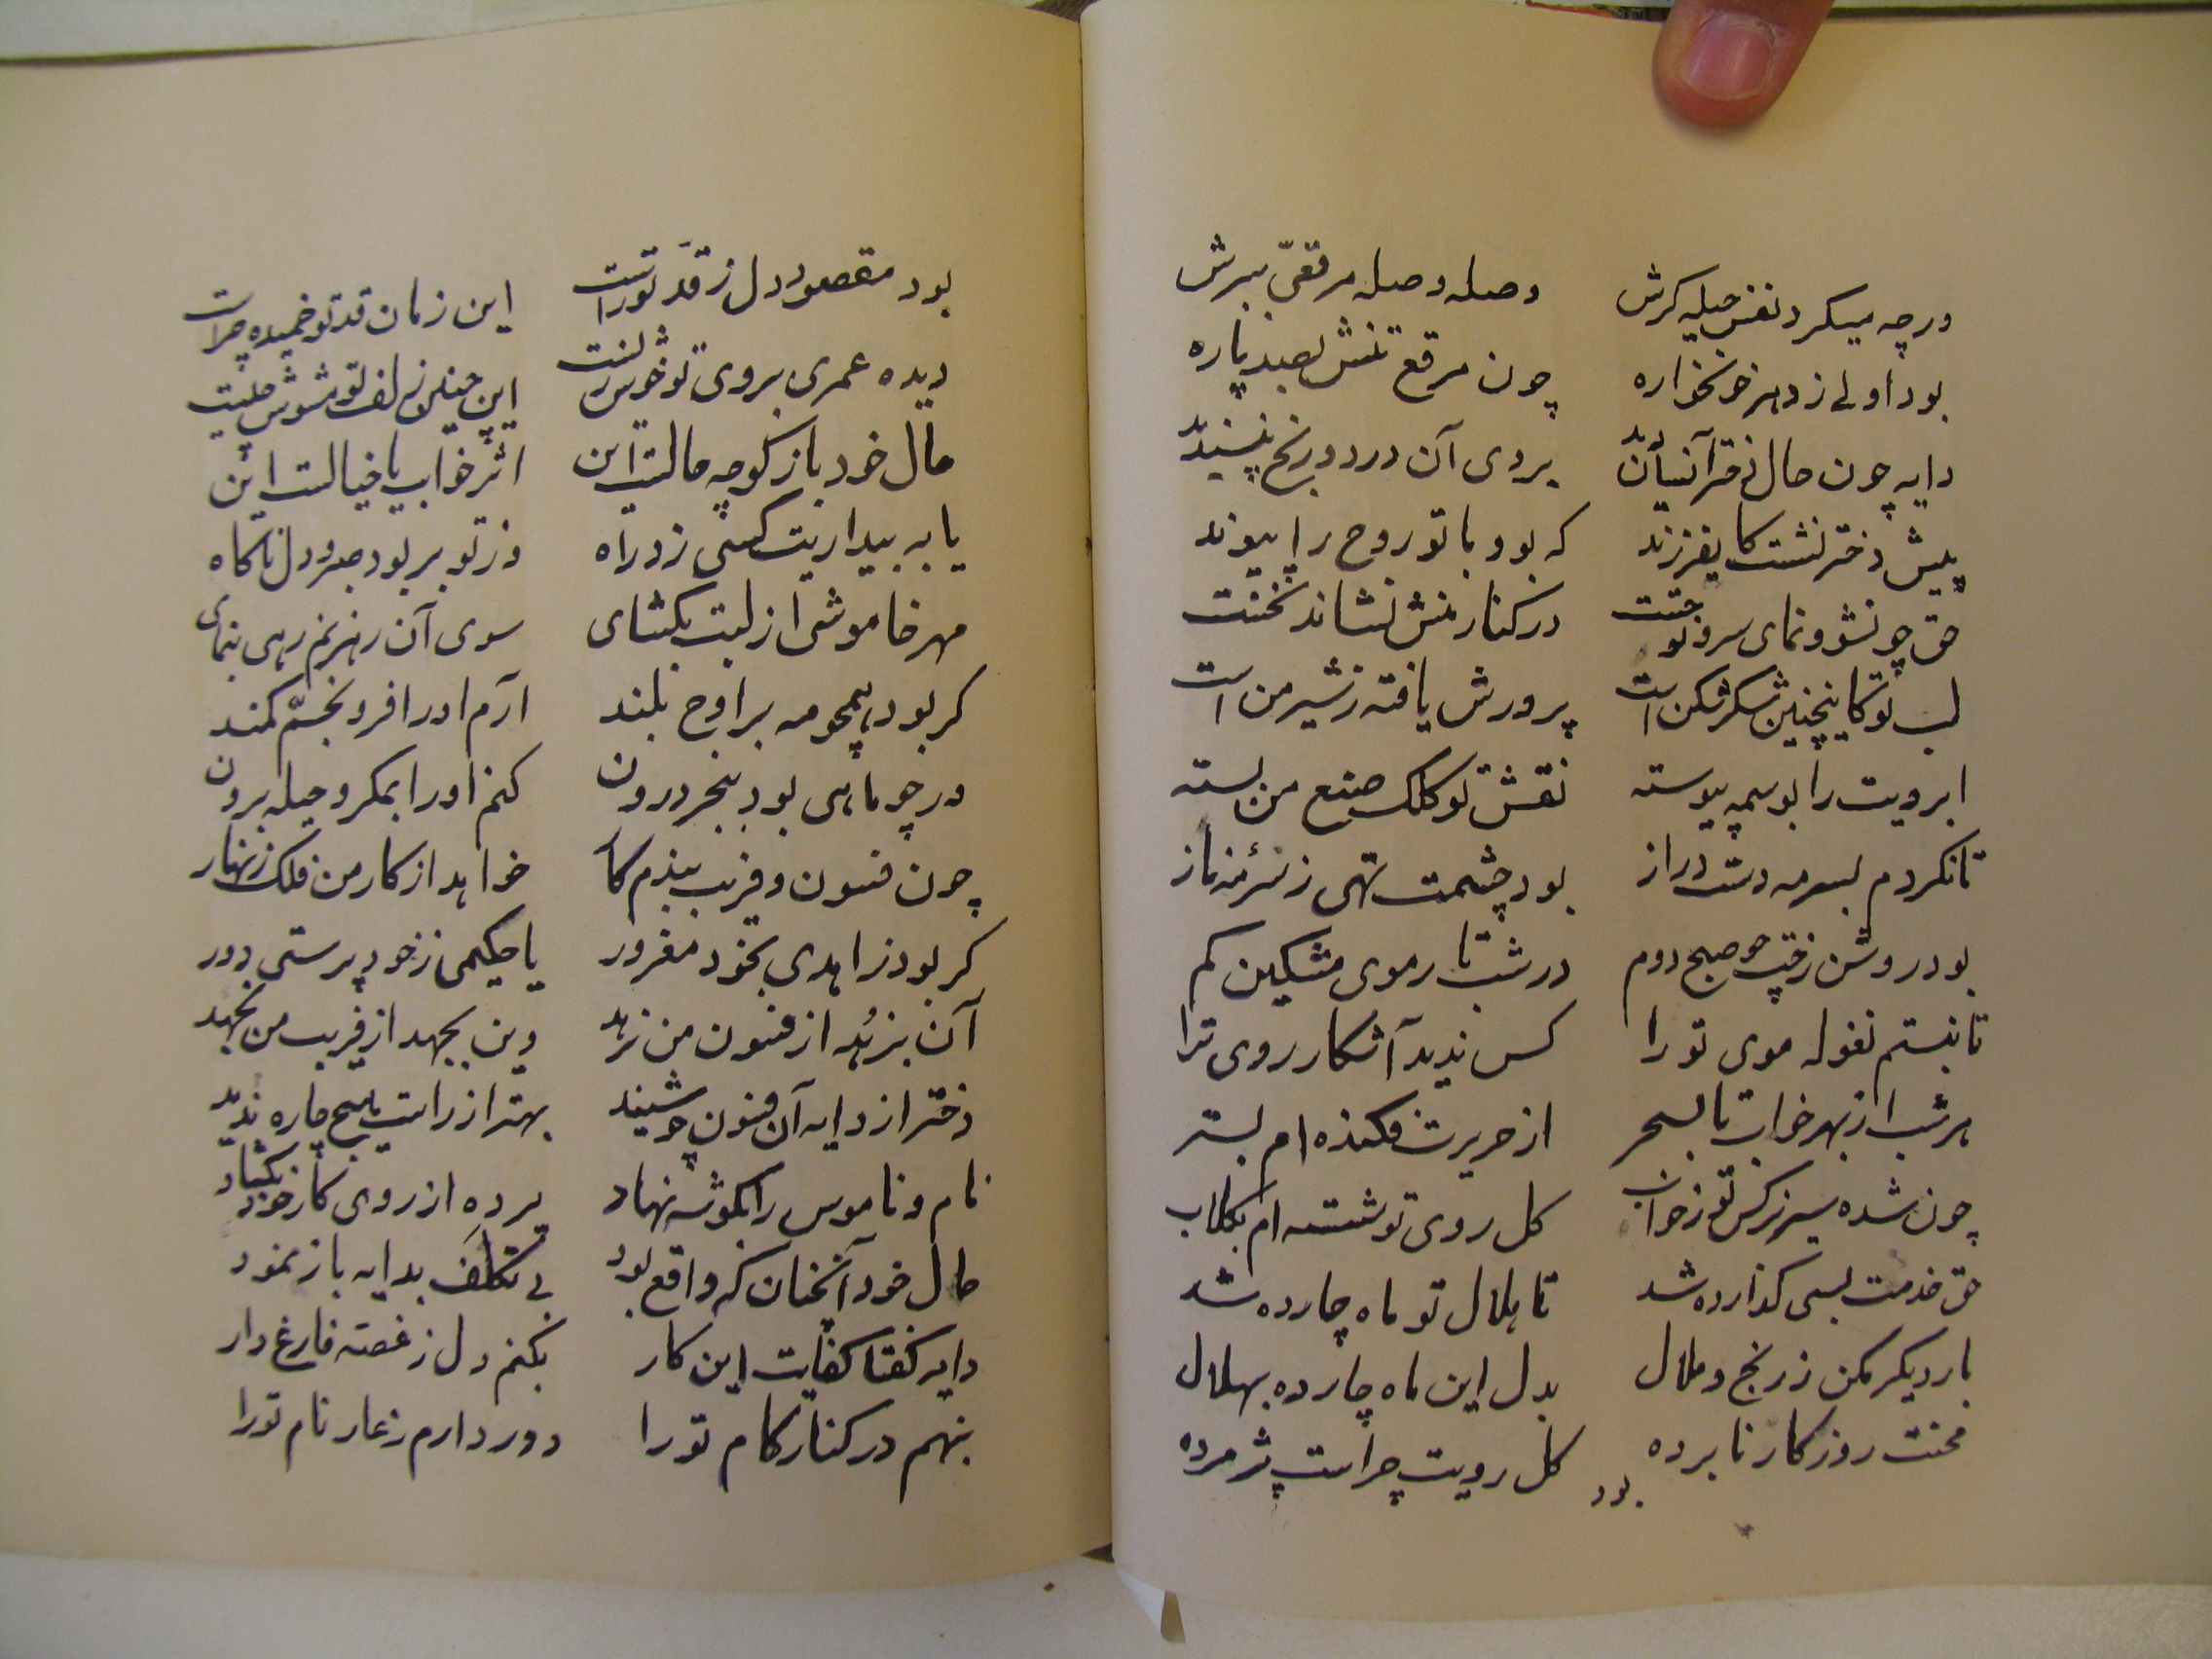 ورچه میکرد نفس حیله کرش وصله وصله مرقعّی ببرش
بود اولی ز دهر خونخواره چون مرقع تنش بصد پاره
دایه چون حال دختر آنسان دید بروی آن درد و رنج نپسندید
پیش دختر نشست کایفرزند که بود با تو روح را پیوند
حق چو نشو و نمای سرو تو جست در کنار منش نشاند نخست
لب تو کاینچنین شکر شکن است پرورش یافته ز شیر من است
ابرویت را بوسمه پیوسته نقش تو کلک صنع من بسته
تا نکردم بسرمه دست دراز بود چشمت تهی ز سرمه ناز
بود روشن رخت چو صبح دوم در شب تار موی مشکین کم
تا نبستم نغوله موی تو را کس ندید آشکار روی ترا
هر شب از بهر خواب تا بسحر از حریرت فکنده ام بستر
چون شده سیر نرکس تو ز خواب کل روی تو شسته ام بکلاب
حق خدمت بسی کذارده شد تا هلال تو ماه چارده شد
بار دیکر مکن ز رنج و ملال بدل این ماه چارده بهلال
محنت روزکار نابرده کل رویت چراست پژمرده
بود
بود مقصود دل ز قدّ تو راست این زمان قد تو خمیده چراست
دیده عمری بروی تو خوش زیست این چنین زلف تو مشوش چیست
حال خود باز کو چه حالست این اثر خواب یا خیالست این
یا به بیداریت کسی زد راه وز تو بربود صبر و دل ناکاه
مهر خاموشی از لبت بکشای سوی آن رهزنم رهی بنمای
کر بود همچو مه بر اوج بلند آرم او را فرو بخمّ کمند
ور چو ماهی بود ببحر درون کنم او را بمکر و حیله برون
چون فسون و فریب بندم کار خواهد از کار من فلک زنهار
کر بود زاهدی بخود مغرور یا حکیمی ز خود پرستی دور
آن بزهُد از فسون من نرهد وین بجهد از فریب من نجهد
دختر از دایه آن فسون چو شنید بهتر از راست هیچ چاره ندید
نام و ناموس را بکوشه نهاد پرده از روی کار خود بکشاد
حال خود آنچنان که واقع بود بی تکلّف بدایه باز نمود
دایه کفتا کفایت این کار بکنم دل ز غصه فارغ دار
بنهم در کنار کام تو را دور دارم ز عار نام تو را